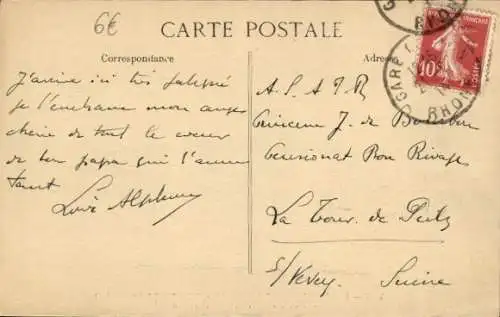 6€
CARTE POSTALE
Correspondance
Adresse
J'arrive ici très fatigué
je t'embrasse mon ange
chérie de tout le coeur
de ton papa qui t'aime
tant
Louis Alphonse
A. S. A. I. R.
Princesse J. de Bourbon
Pensionat Bon Rivage
La Tour de Peilz
s/Vevey. Suisse
GARE
RHONE
10